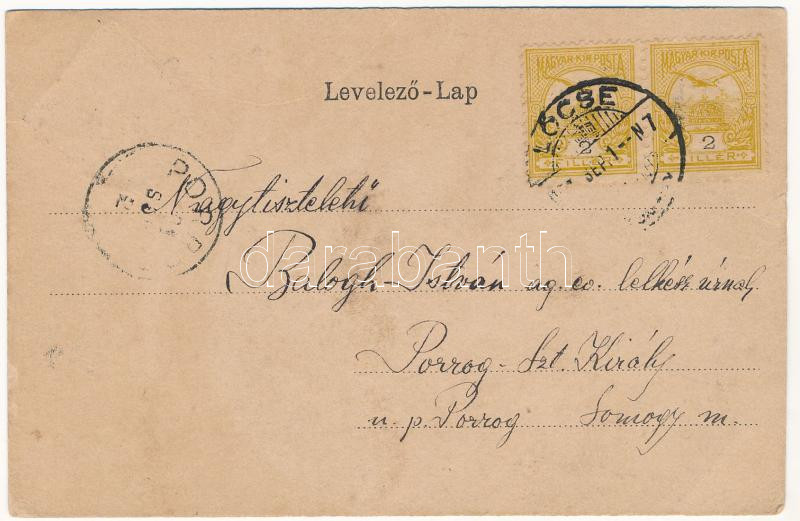 MAGYAR KIR. POSTA MAGYAR KIR. POSTA
Levelező-Lap
LŐCSE
SEP. 1 N7
2
FILLÉR FILLÉR
Nagytiszteletű
darabanth
Balogh-István ag. ev. lelkész úrnak
Porrog-Szt. Király
u. p. Porrog Somogy m.